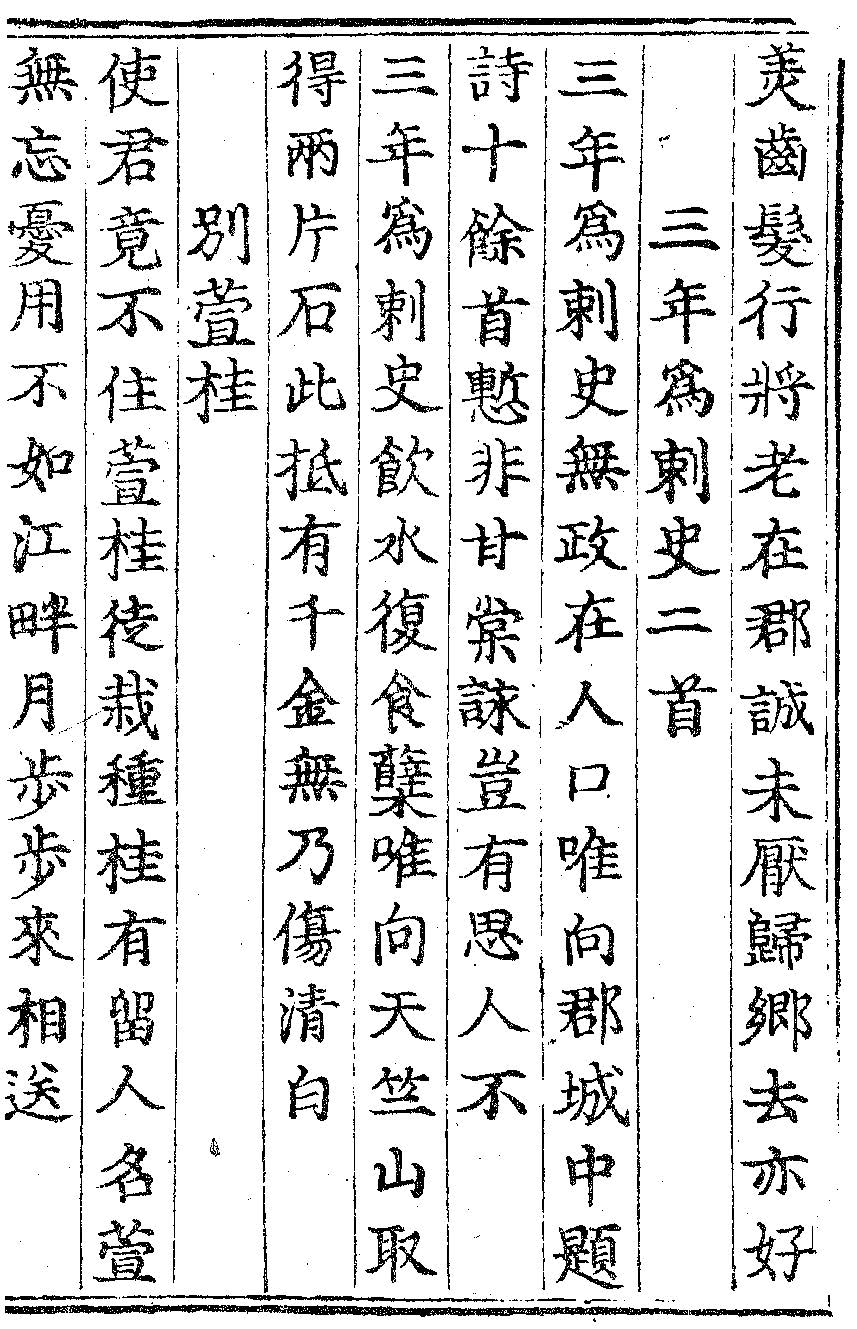 羙齒髮行將老在郡誠未厭歸鄉去亦好
三年為刺史二首
三年為刺史無政在人口唯向郡城中題
詩十餘首慙非甘棠詠豈有思人不
三年為刺史飲水復食蘖唯向天竺山取
得兩片石此抵有千金無乃傷清白
別萱桂
使君竟不住萱桂徒栽種桂有留人名萱
無忘憂用不如江畔月步步來相送